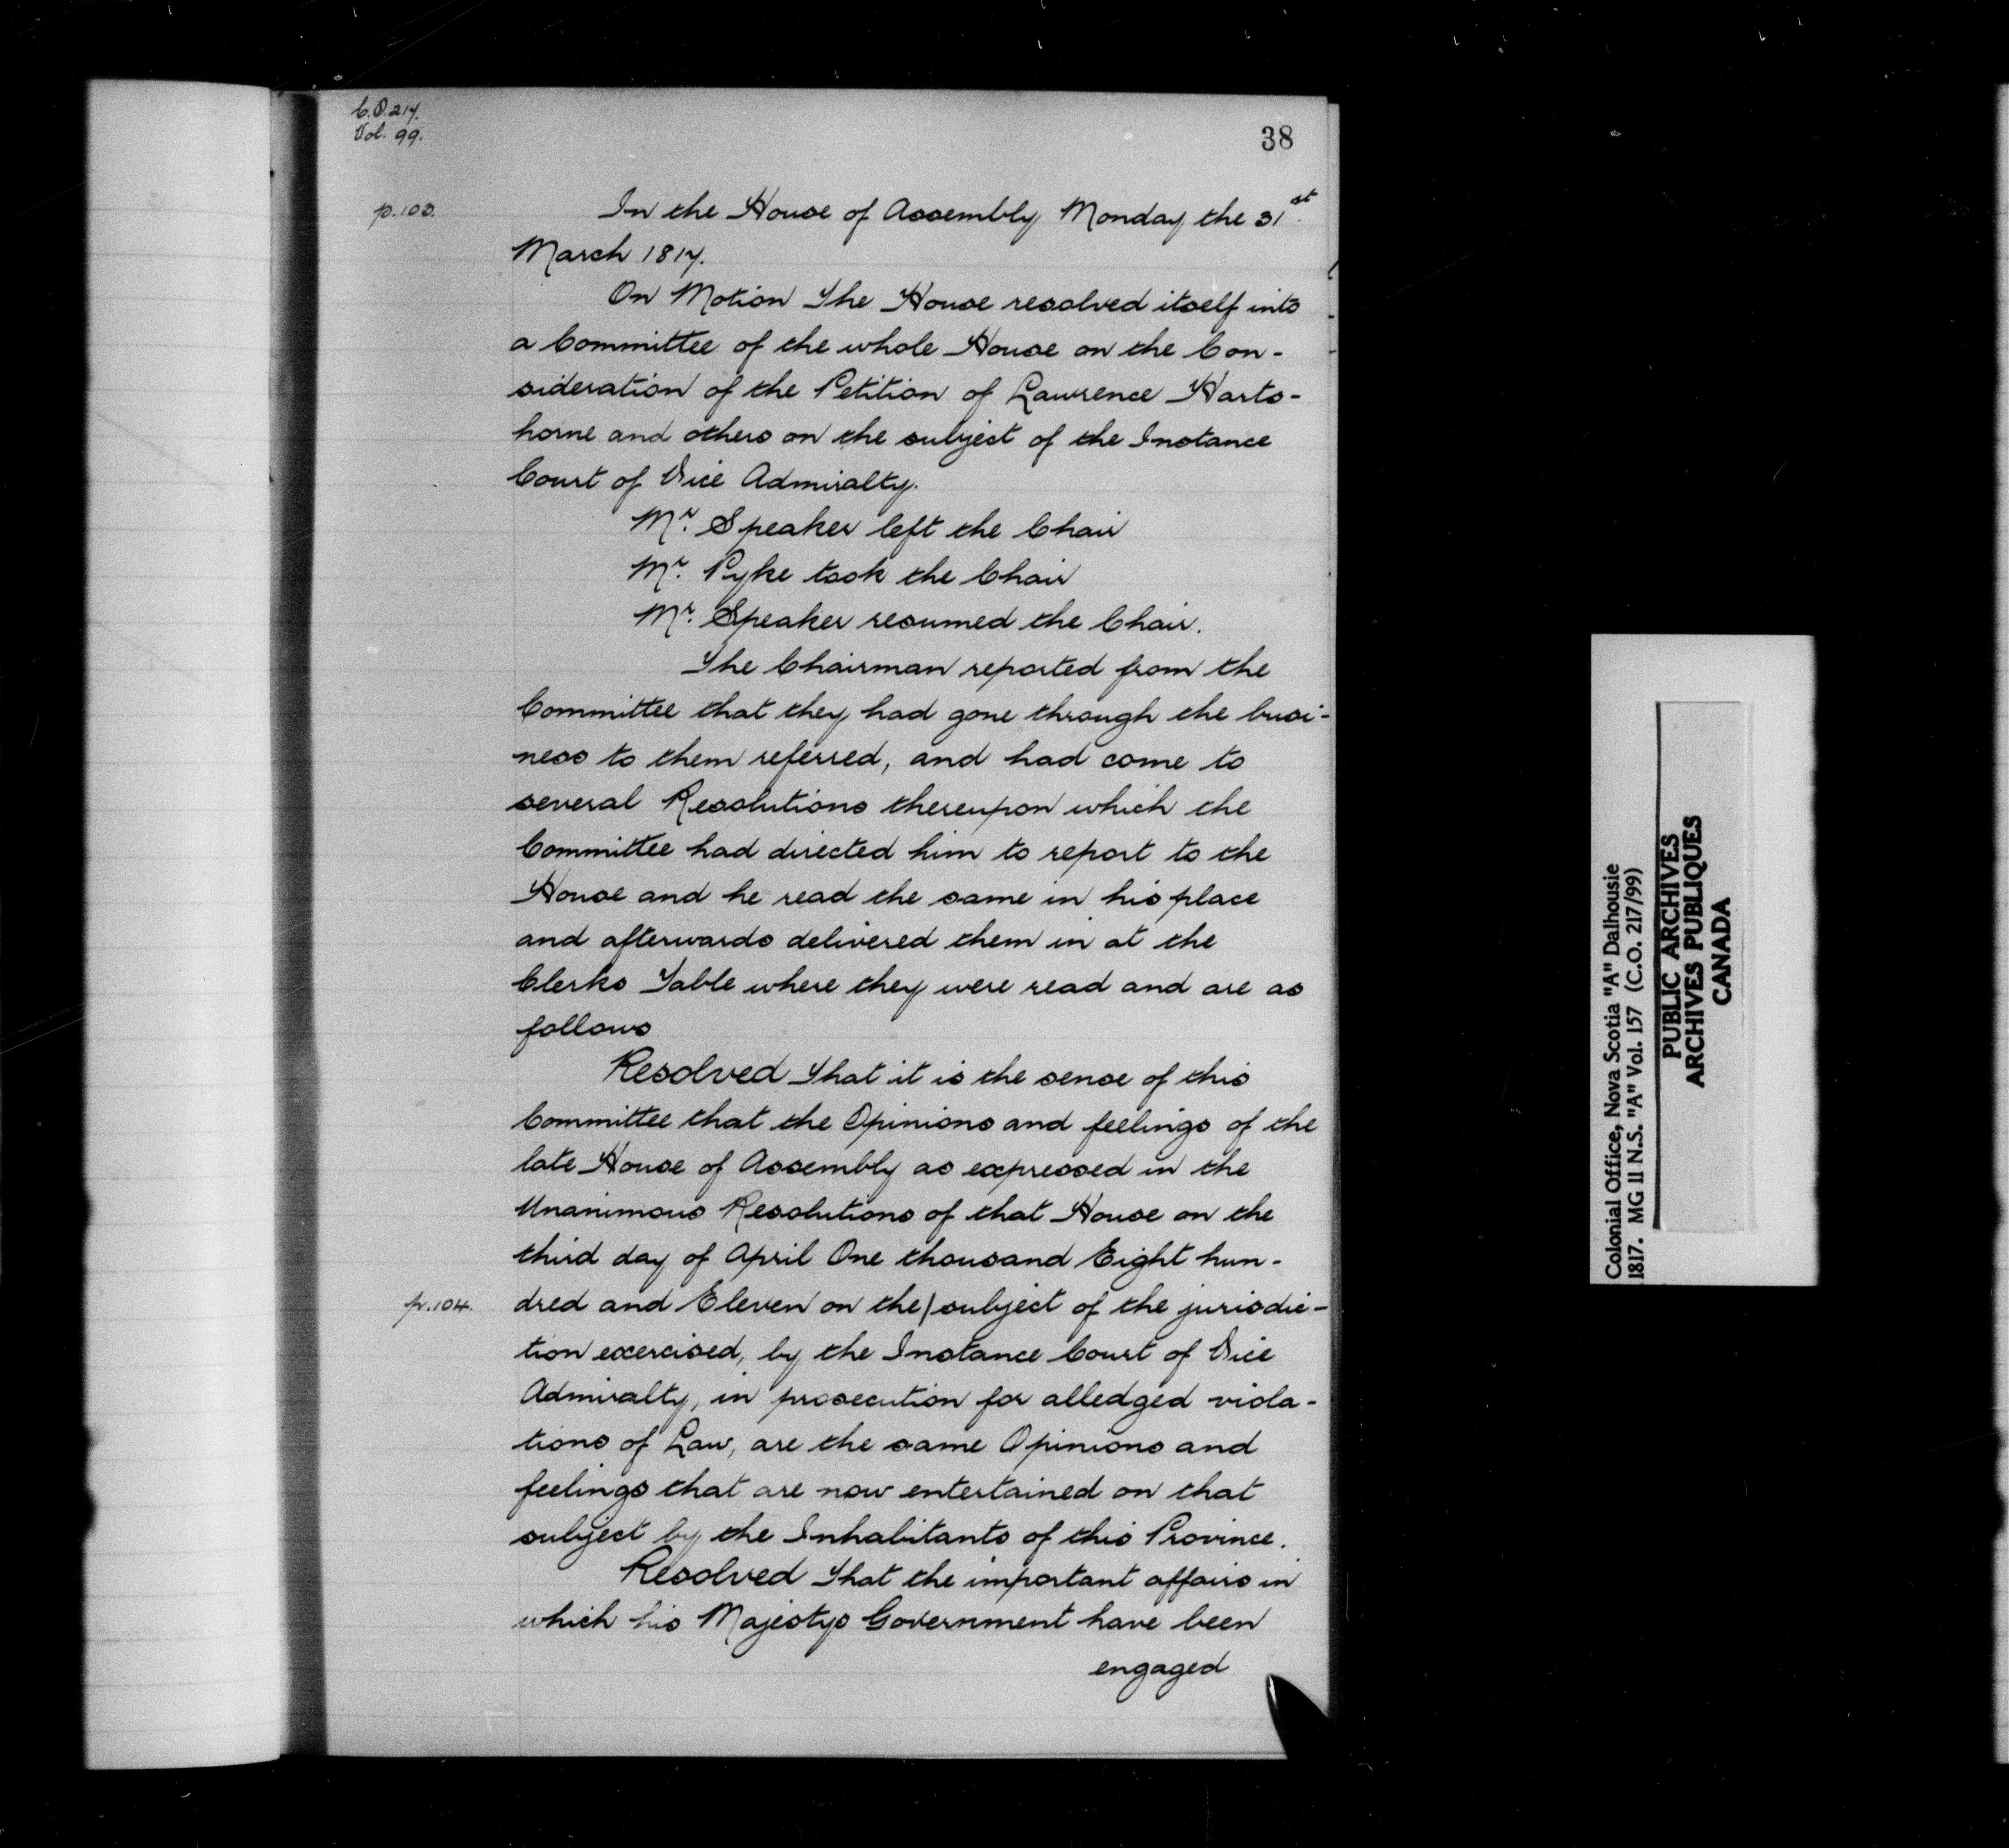 C.O. 217.
Vol. 99.
38
p.103.
In the House of Assembly Monday the 31st.
March 1817.
On Motion The House resolved itself into
a Committee of the whole House on the Con-
sideration of the Petition of Lawrence Harts-
horne and others on the subject of the Instance
Court of Vice Admiralty.
Mr. Speaker left the Chair
Mr. Pyke took the Chair
Mr. Speaker resumed the Chair.
The Chairman reported from the
Committee that they had gone through the busi-
ness to them referred, and had come to
several Resolutions thereupon which the
Committee had directed him to report to the
House and he read the same in his place
and afterwards delivered them in at the
Clerks Table where they were read and are as
follows
Resolved That it is the sense of this
Committee that the Opinions and feelings of the
late House of Assembly as expressed in the
Unanimous Resolutions of that House on the
third day of April One thousand Eight hun-
p.104.
dred and Eleven on the/subject of the jurisdic-
tion exercised, by the Instance Court of Vice
Admiralty, in prosecution for alledged viola-
tions of Law, are the same Opinions and
feelings that are now entertained on that
subject by the Inhabitants of this Province.
Resolved That the important affairs in
which his Majestys Government have been
engaged
Colonial Office, Nova Scotia "A" Dalhousie
1817. MG 11 N.S. "A" Vol. 157 (C.O. 217/99)
PUBLIC ARCHIVES
ARCHIVES PUBLIQUES
CANADA